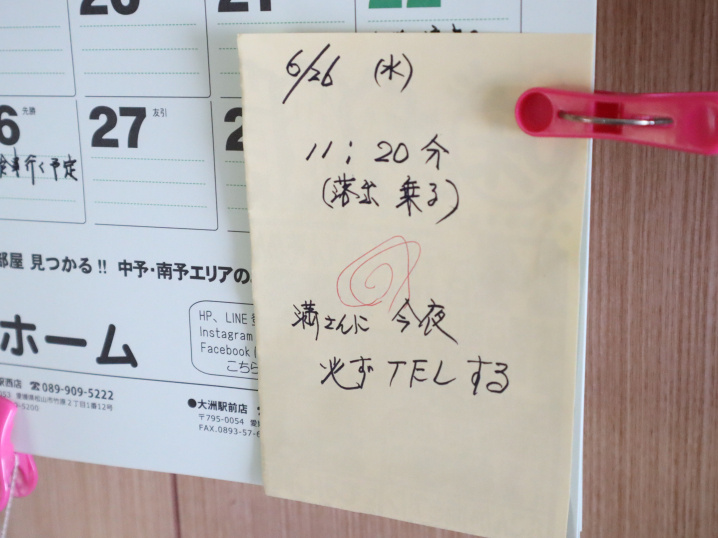 20
22
6 先勝
27 友引
2
食事行く予定
部屋 見つかる!! 中予・南予エリアの
ホーム
HP、LINE
Instagram
Facebook
こちら
駅西店 ☎089-909-5222
愛媛県松山市竹原2丁目1番12号
-5200
●大洲駅前店
〒795-0054 愛
FAX.0893-57-6
6/26 (水)
11:20分
(落出 乗る)
満さんに 今夜
必ずTELする